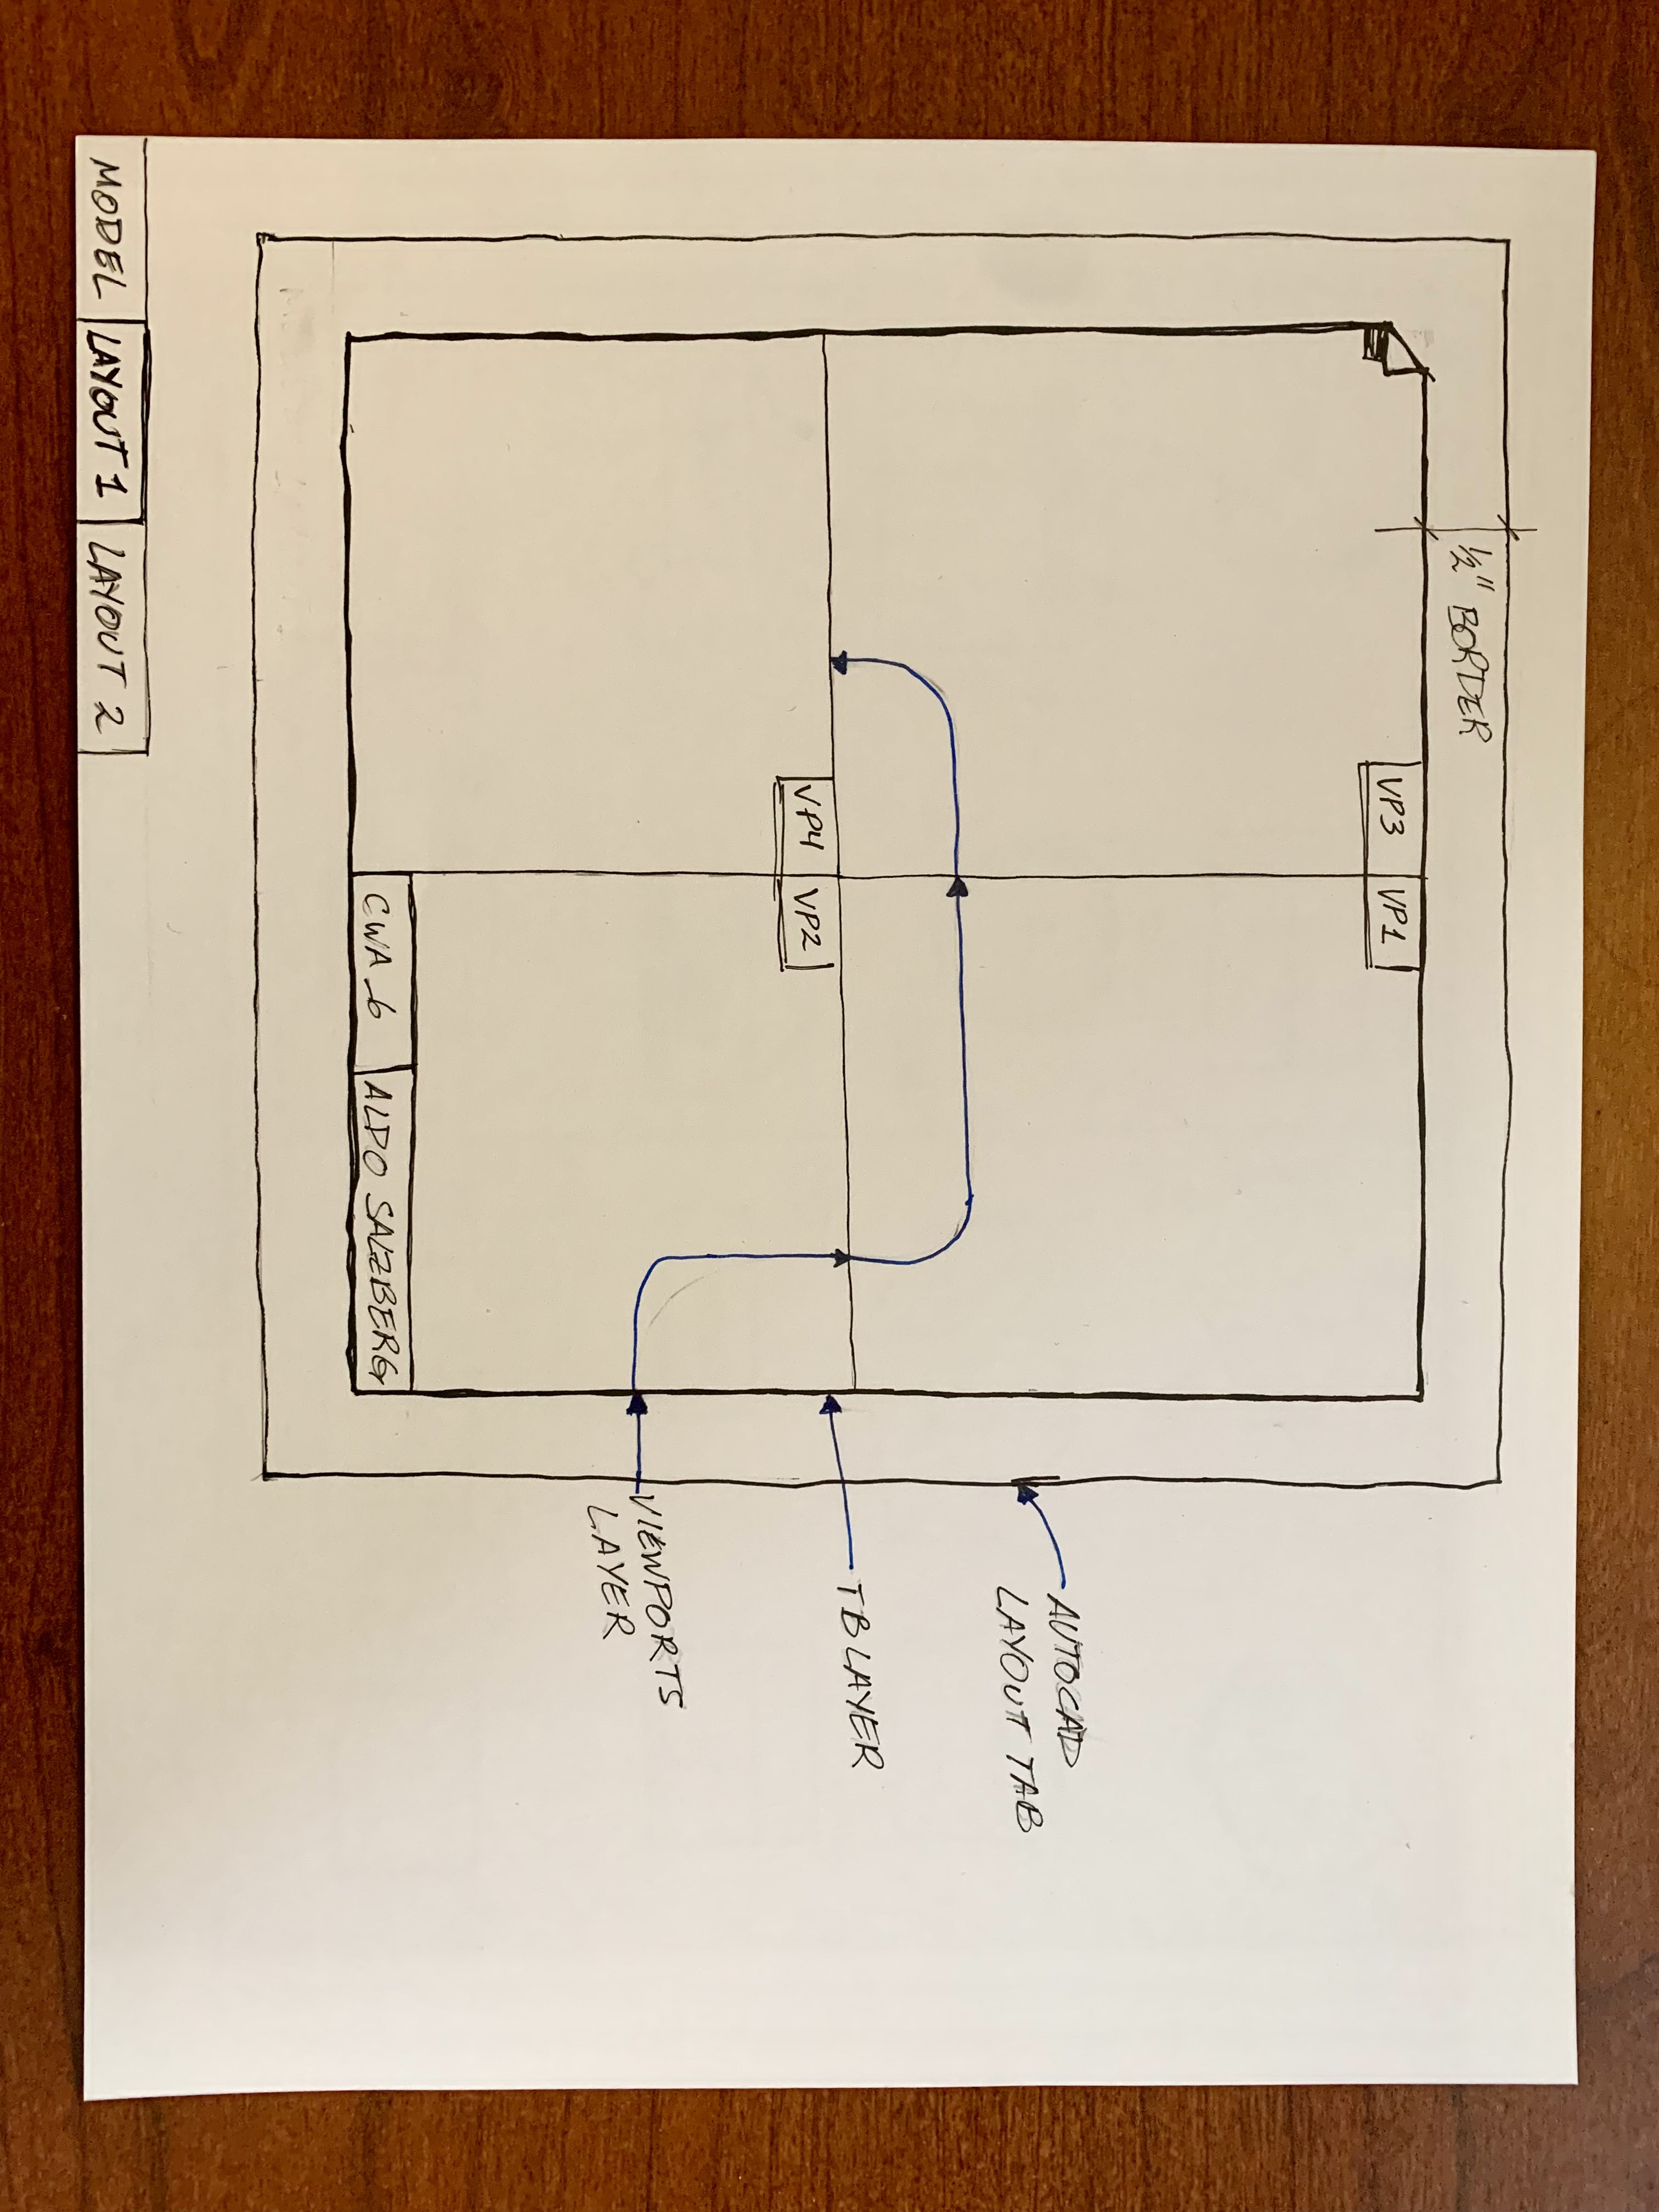 ½" BORDER
VP3 VP1
AUTOCAD
LAYOUT TAB
TB LAYER
VP4 VP2
VIEWPORTS
LAYER
CWA_6 ALDO SALZBERG
MODEL LAYOUT 1 LAYOUT 2